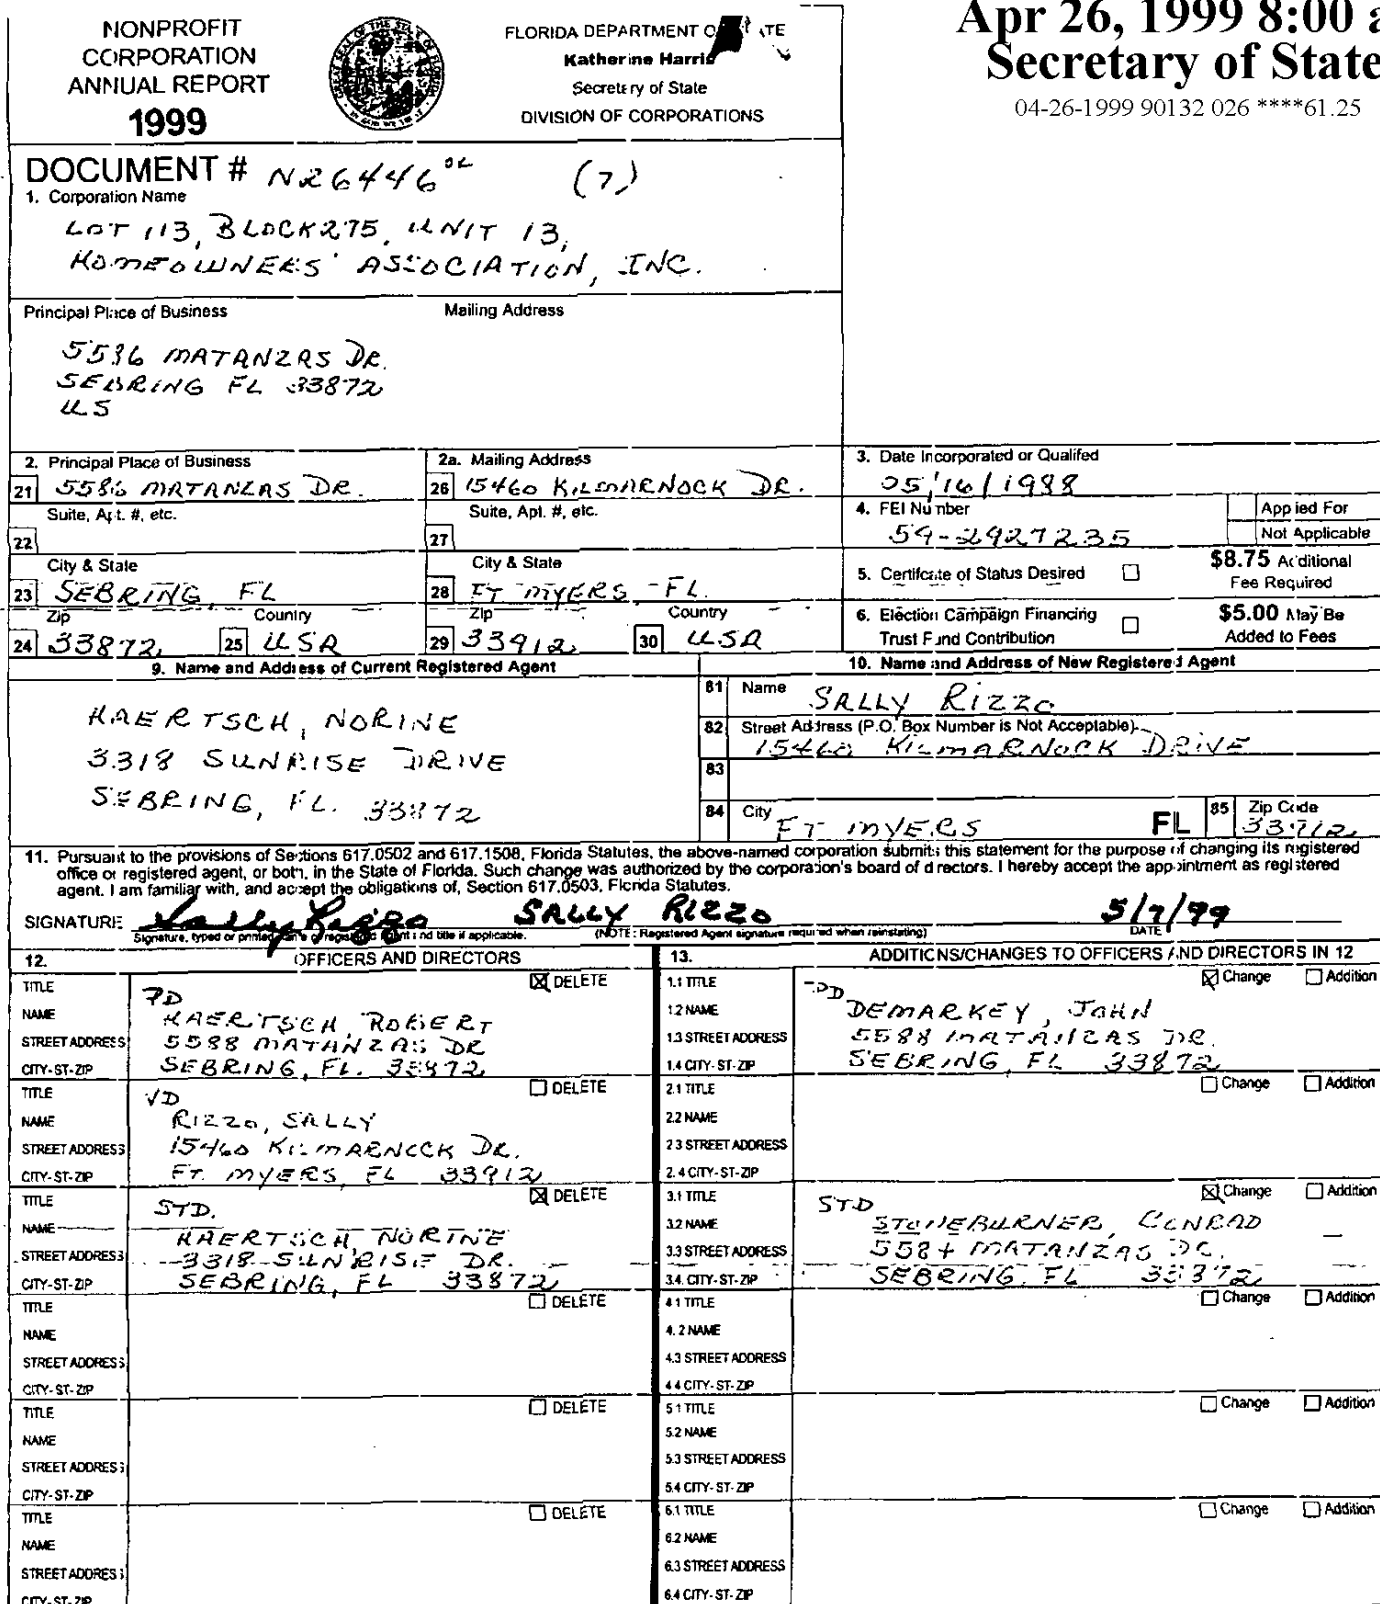 NONPROFIT
CORPORATION
ANNUAL REPORT
1999
FLORIDA DEPARTMENT
Katherine Harris
Secretary of State
DIVISION OF CORPORATIONS
Apr 26, 1999 8:00 a
Secretary of State
04-26-1999 90132 026 ****61.25
DOCUMENT # N26446 (7)
1. Corporation Name
LOT 113, BLOCK 275, UNIT 13,
HOMEOWNERS' ASSOCIATION, INC.
Principal Place of Business
Mailing Address
5586 MATANZAS DR.
SEBRING FL 33872
US
2. Principal Place of Business
21 5586 MATANZAS DR.
Suite, Apt. #, etc.
22
City & State
23 SEBRING, FL
Zip Country
24 33872 25 USA
2a. Mailing Address
26 15460 KILMARNOCK DR.
Suite, Apt. #, etc.
27
City & State
28 FT MYERS, FL.
Zip Country
29 33912 30 USA
3. Date Incorporated or Qualifed
05/16/1988
4. FEI Number
59-2927235
Applied For
Not Applicable
5. Certifcate of Status Desired
$8.75 Additional
Fee Required
6. Election Campaign Financing
Trust Fund Contribution
$5.00 May Be
Added to Fees
9. Name and Address of Current Registered Agent
HAERTSCH, NORINE
3318 SUNRISE DRIVE
SEBRING, FL. 33872
10. Name and Address of New Registered Agent
81 Name SALLY RIZZO
82 Street Address (P.O. Box Number is Not Acceptable)
15460 KILMARNOCK DRIVE
83
84 City FT MYERS FL 85 Zip Code 33912
11. Pursuant to the provisions of Sections 617.0502 and 617.1508, Florida Statutes, the above-named corporation submits this statement for the purpose of changing its registered
office or registered agent, or both, in the State of Florida. Such change was authorized by the corporation's board of directors. I hereby accept the appointment as registered
agent. I am familiar with, and accept the obligations of, Section 617.0503, Florida Statutes.
SIGNATURE Sally Rizzo SALLY RIZZO 5/7/99
Signature, typed or printed name of registered agent and title if applicable. (NOTE: Registered Agent signature required when reinstating) DATE
12. OFFICERS AND DIRECTORS
TITLE PD DELETE
NAME HAERTSCH, ROBERT
STREET ADDRESS 5588 MATANZAS DR
CITY-ST-ZIP SEBRING, FL. 33872
TITLE VD DELETE
NAME RIZZO, SALLY
STREET ADDRESS 15460 KILMARNOCK DR.
CITY-ST-ZIP FT. MYERS, FL 33912
TITLE STD. DELETE
NAME HAERTSCH NORINE
STREET ADDRESS 3318 SUNRISE DR.
CITY-ST-ZIP SEBRING, FL 33872
TITLE DELETE
NAME
STREET ADDRESS
CITY-ST-ZIP
TITLE DELETE
NAME
STREET ADDRESS
CITY-ST-ZIP
TITLE DELETE
NAME
STREET ADDRESS
CITY-ST-ZIP
13. ADDITIONS/CHANGES TO OFFICERS AND DIRECTORS IN 12
1.1 TITLE PD Change Addition
1.2 NAME DEMARKEY, JOHN
1.3 STREET ADDRESS 5588 MATANZAS DR.
1.4 CITY-ST-ZIP SEBRING, FL 33872
2.1 TITLE Change Addition
2.2 NAME
2.3 STREET ADDRESS
2.4 CITY-ST-ZIP
3.1 TITLE STD Change Addition
3.2 NAME STONEBURNER, CONRAD
3.3 STREET ADDRESS 5584 MATANZAS DR.
3.4. CITY-ST-ZIP SEBRING, FL 33872
4.1 TITLE Change Addition
4.2 NAME
4.3 STREET ADDRESS
4.4 CITY-ST-ZIP
5.1 TITLE Change Addition
5.2 NAME
5.3 STREET ADDRESS
5.4 CITY-ST-ZIP
6.1 TITLE Change Addition
6.2 NAME
6.3 STREET ADDRESS
6.4 CITY-ST-ZIP